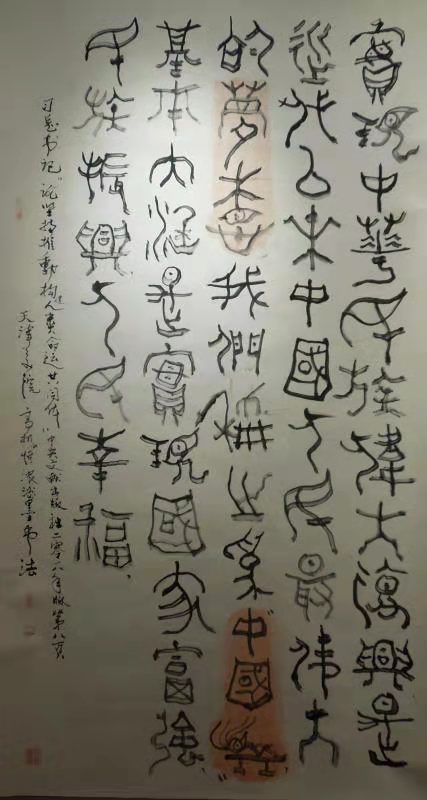 實現中華民族偉大復興是
近代以來中國人民最偉大
的夢想我們稱之為“中國夢”
基本內涵是實現國家富強、
民族振興、人民幸福、
习总书记“论坚持推動構建人类命运共同体”中央文献出版社二零一八年版第八页
天津美院 高 濃淡墨书法